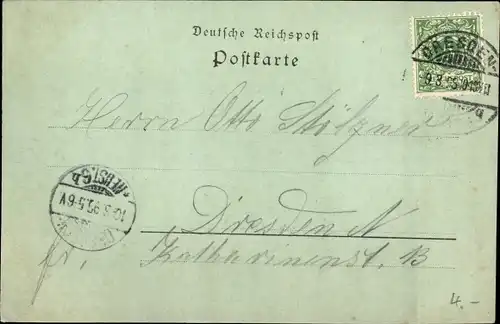 Deutsche Reichspost
Postkarte
DRESDEN-
9.3.95
Herrn Otto Stölzner
Dresden N
fr. Katharinenst. 13
10.3.95.5-6V
4.-